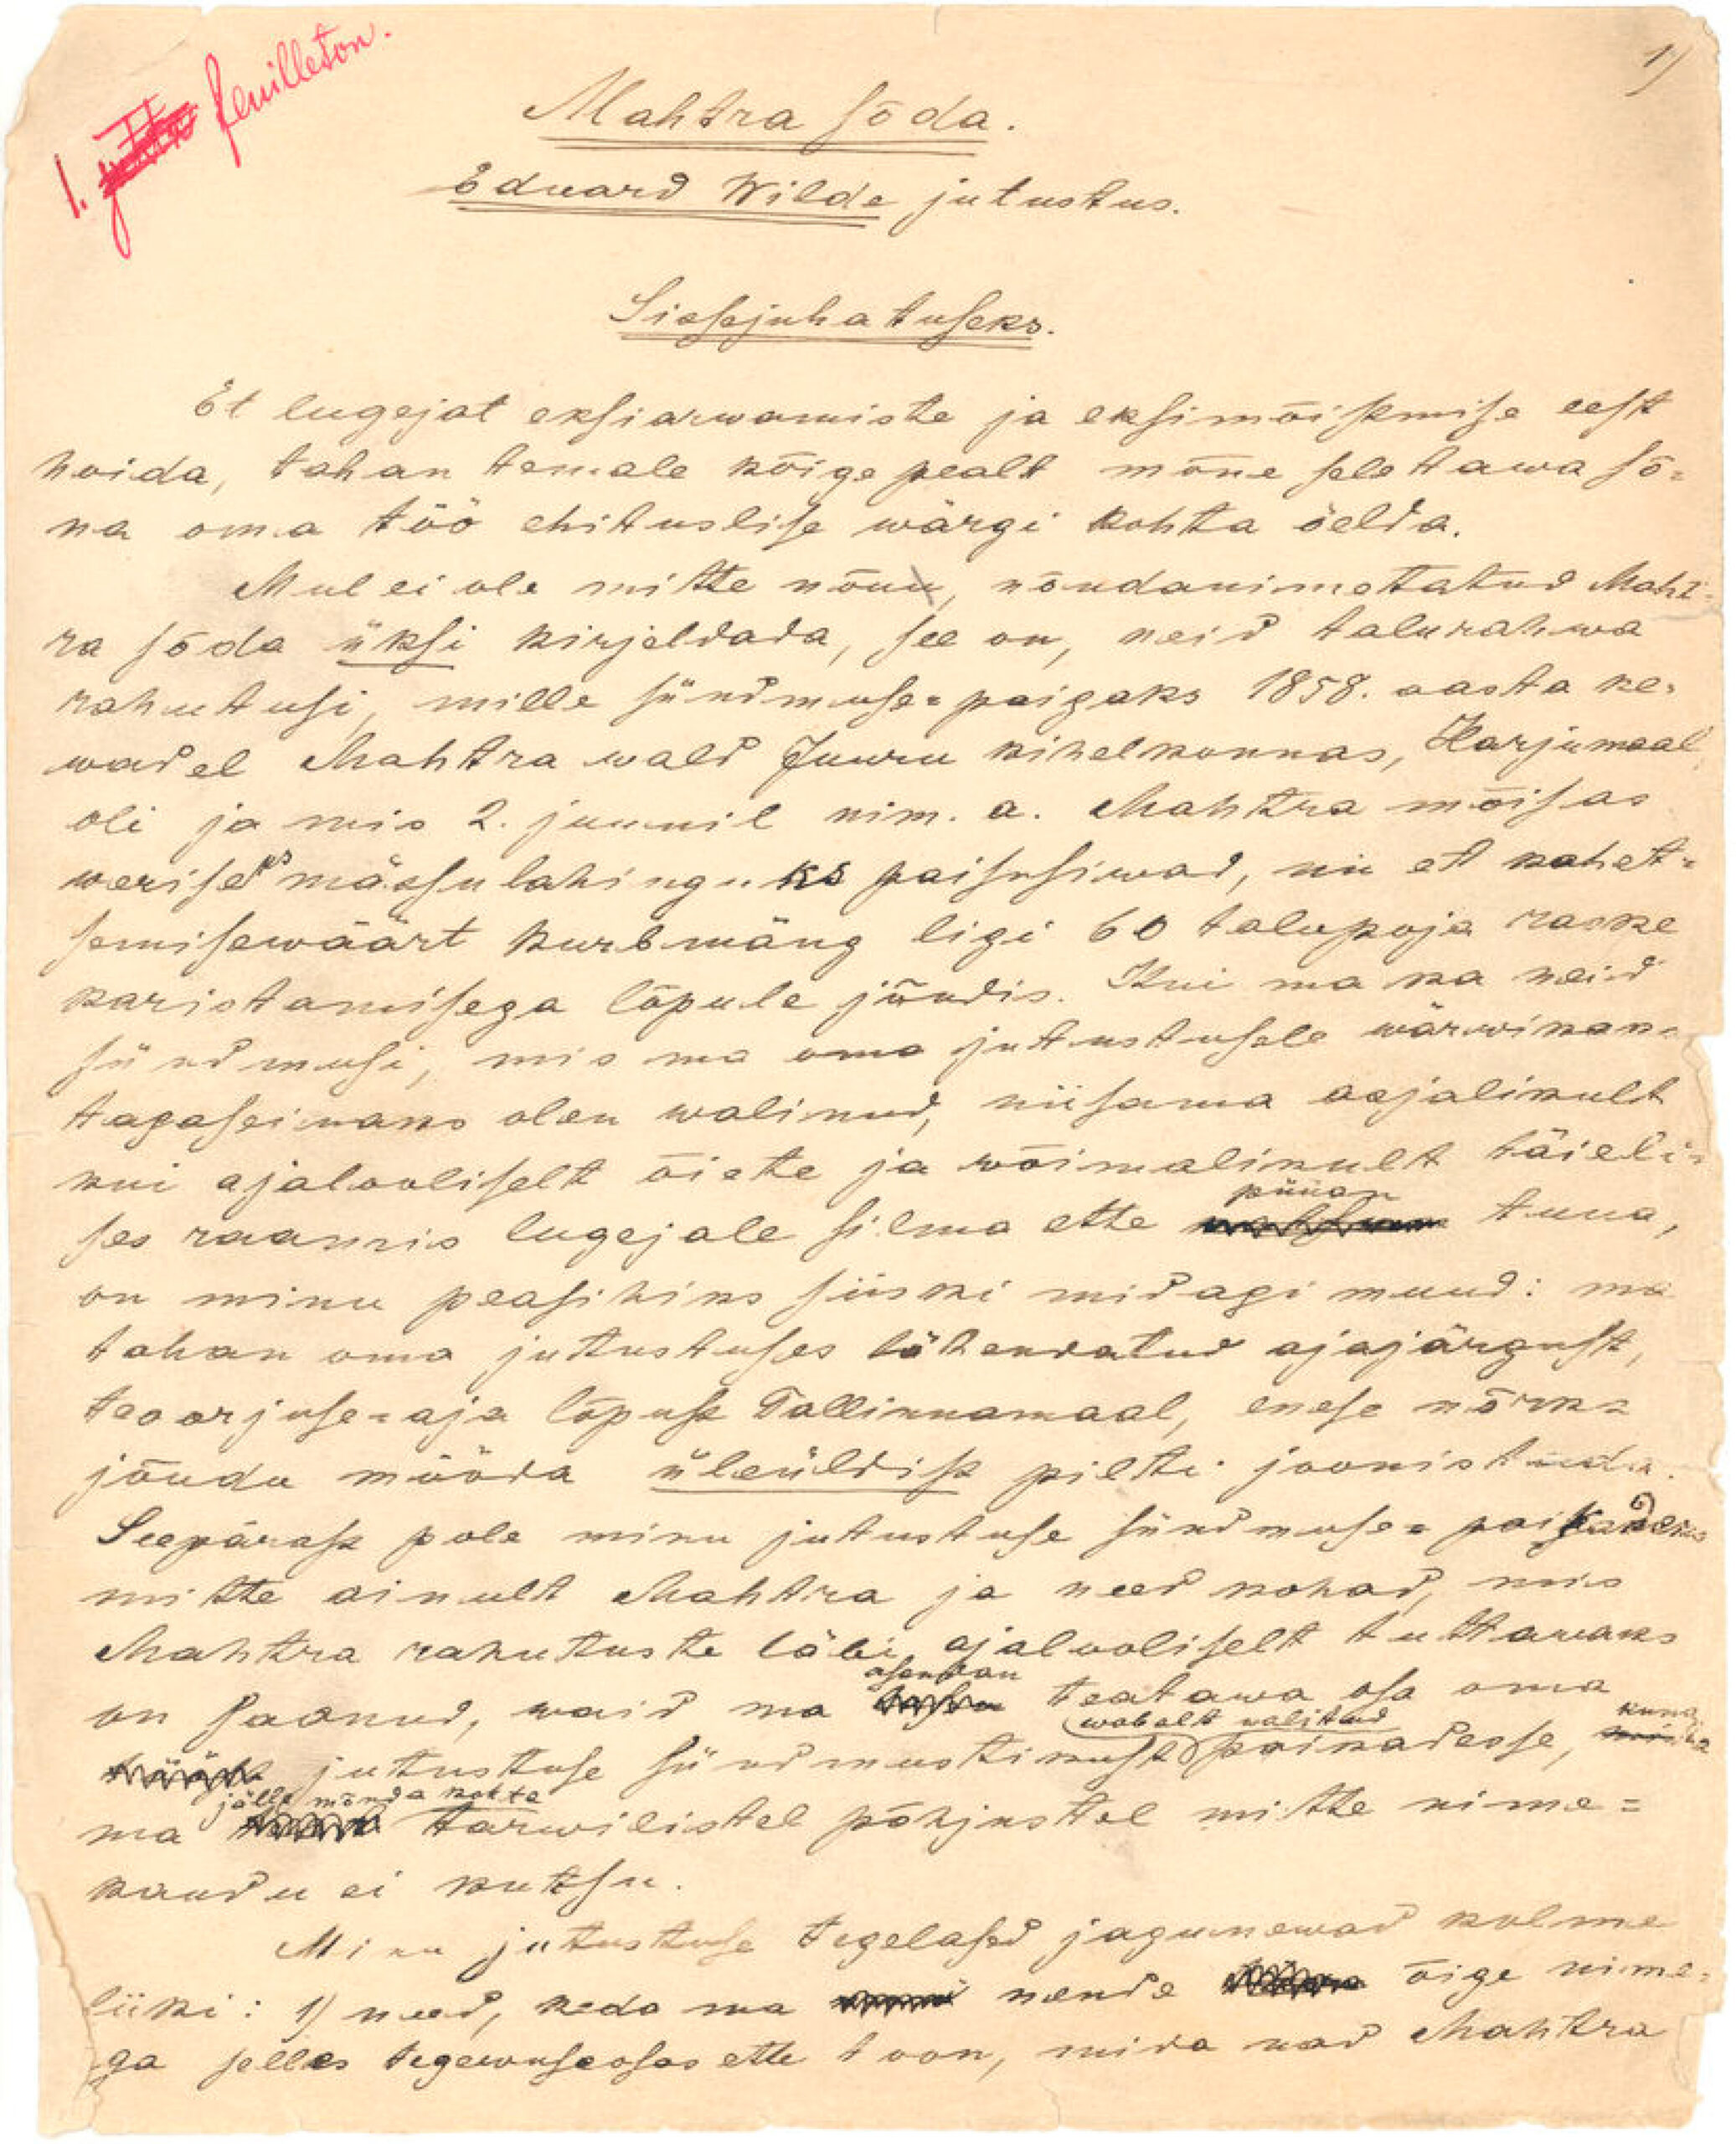 1)
1. feuilleton.
Mahtra sõda.
Eduard Wilde jutustus.
Sissejuhatuseks.
Et lugejat eksiarwamiste ja eksimõistmise eest
hoida, tahan temale kõige pealt mõne seletawa sõ=
na oma töö ehituslise wärgi kohta öelda.
Mul ei ole mitte nõuu, nõndanimetatud Maht=
ra sõda üksi kirjeldada, see on, neid talurahwa
rahutusi, mille sündmuse=paigaks 1858. aasta ke=
wadel Mahtra wald Juuru kihelkonnas, Harjumaal,
oli ja mis 2. juunil nim. a. Mahtra mõisas
weriseks mässulahinguks paisusiwad, nii et kahet=
semisewäärt kurbmäng ligi 60 talupoja raske
karistamisega lõpule jõudis. Kui ma ka neid
sündmusi, mis ma oma jutustusele wärwikan=
tagaseinaks olen walinud, niisama asjalikult
kui ajalooliselt õiete ja wõimalikult täieli=
ses raamis lugejale silma ette püüan tuua,
on minu peasihiks siiski midagi muud: ma
tahan oma jutustuses tähendatud ajajärgust,
teoorjuse=aja lõpust Tallinnamaal, enese nõrka
jõudu mööda üleüldist pilti joonistada.
Seepärast pole minu jutustuse sündmuse=paikadeks
mitte ainult Mahtra ja need kohad, mis
Mahtra rahutuste läbi ajalooliselt tuttawaks
on saanud, waid ma asendan teatawa osa oma
jutustuse sündmustikust wabalt walitud paikadesse, kuna
ma jälle mõnda kohta tarwilistel põhjustel mitte nime=
kaudu ei kutsu.
Minu jutustuse tegelased jagunewad kolme
liiki: 1) need, keda ma nende õige nime=
ga selles tegewuseosas ette toon, mida nad Mahtra